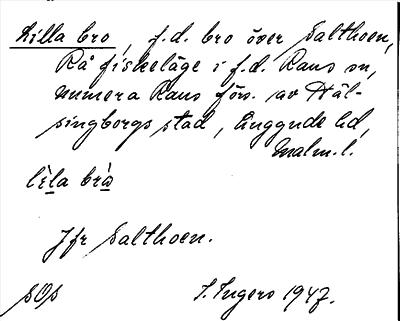 Lilla bro, f.d. bro över Salthoen,
Rå fiskeläge i f.d. Raus sn,
numera Raus förs. av Häl-
singborgs stad, Luggude hd,
Malm.l.
lìla brò
Jfr Salthoen.
SOS
S. Ingers 1947.